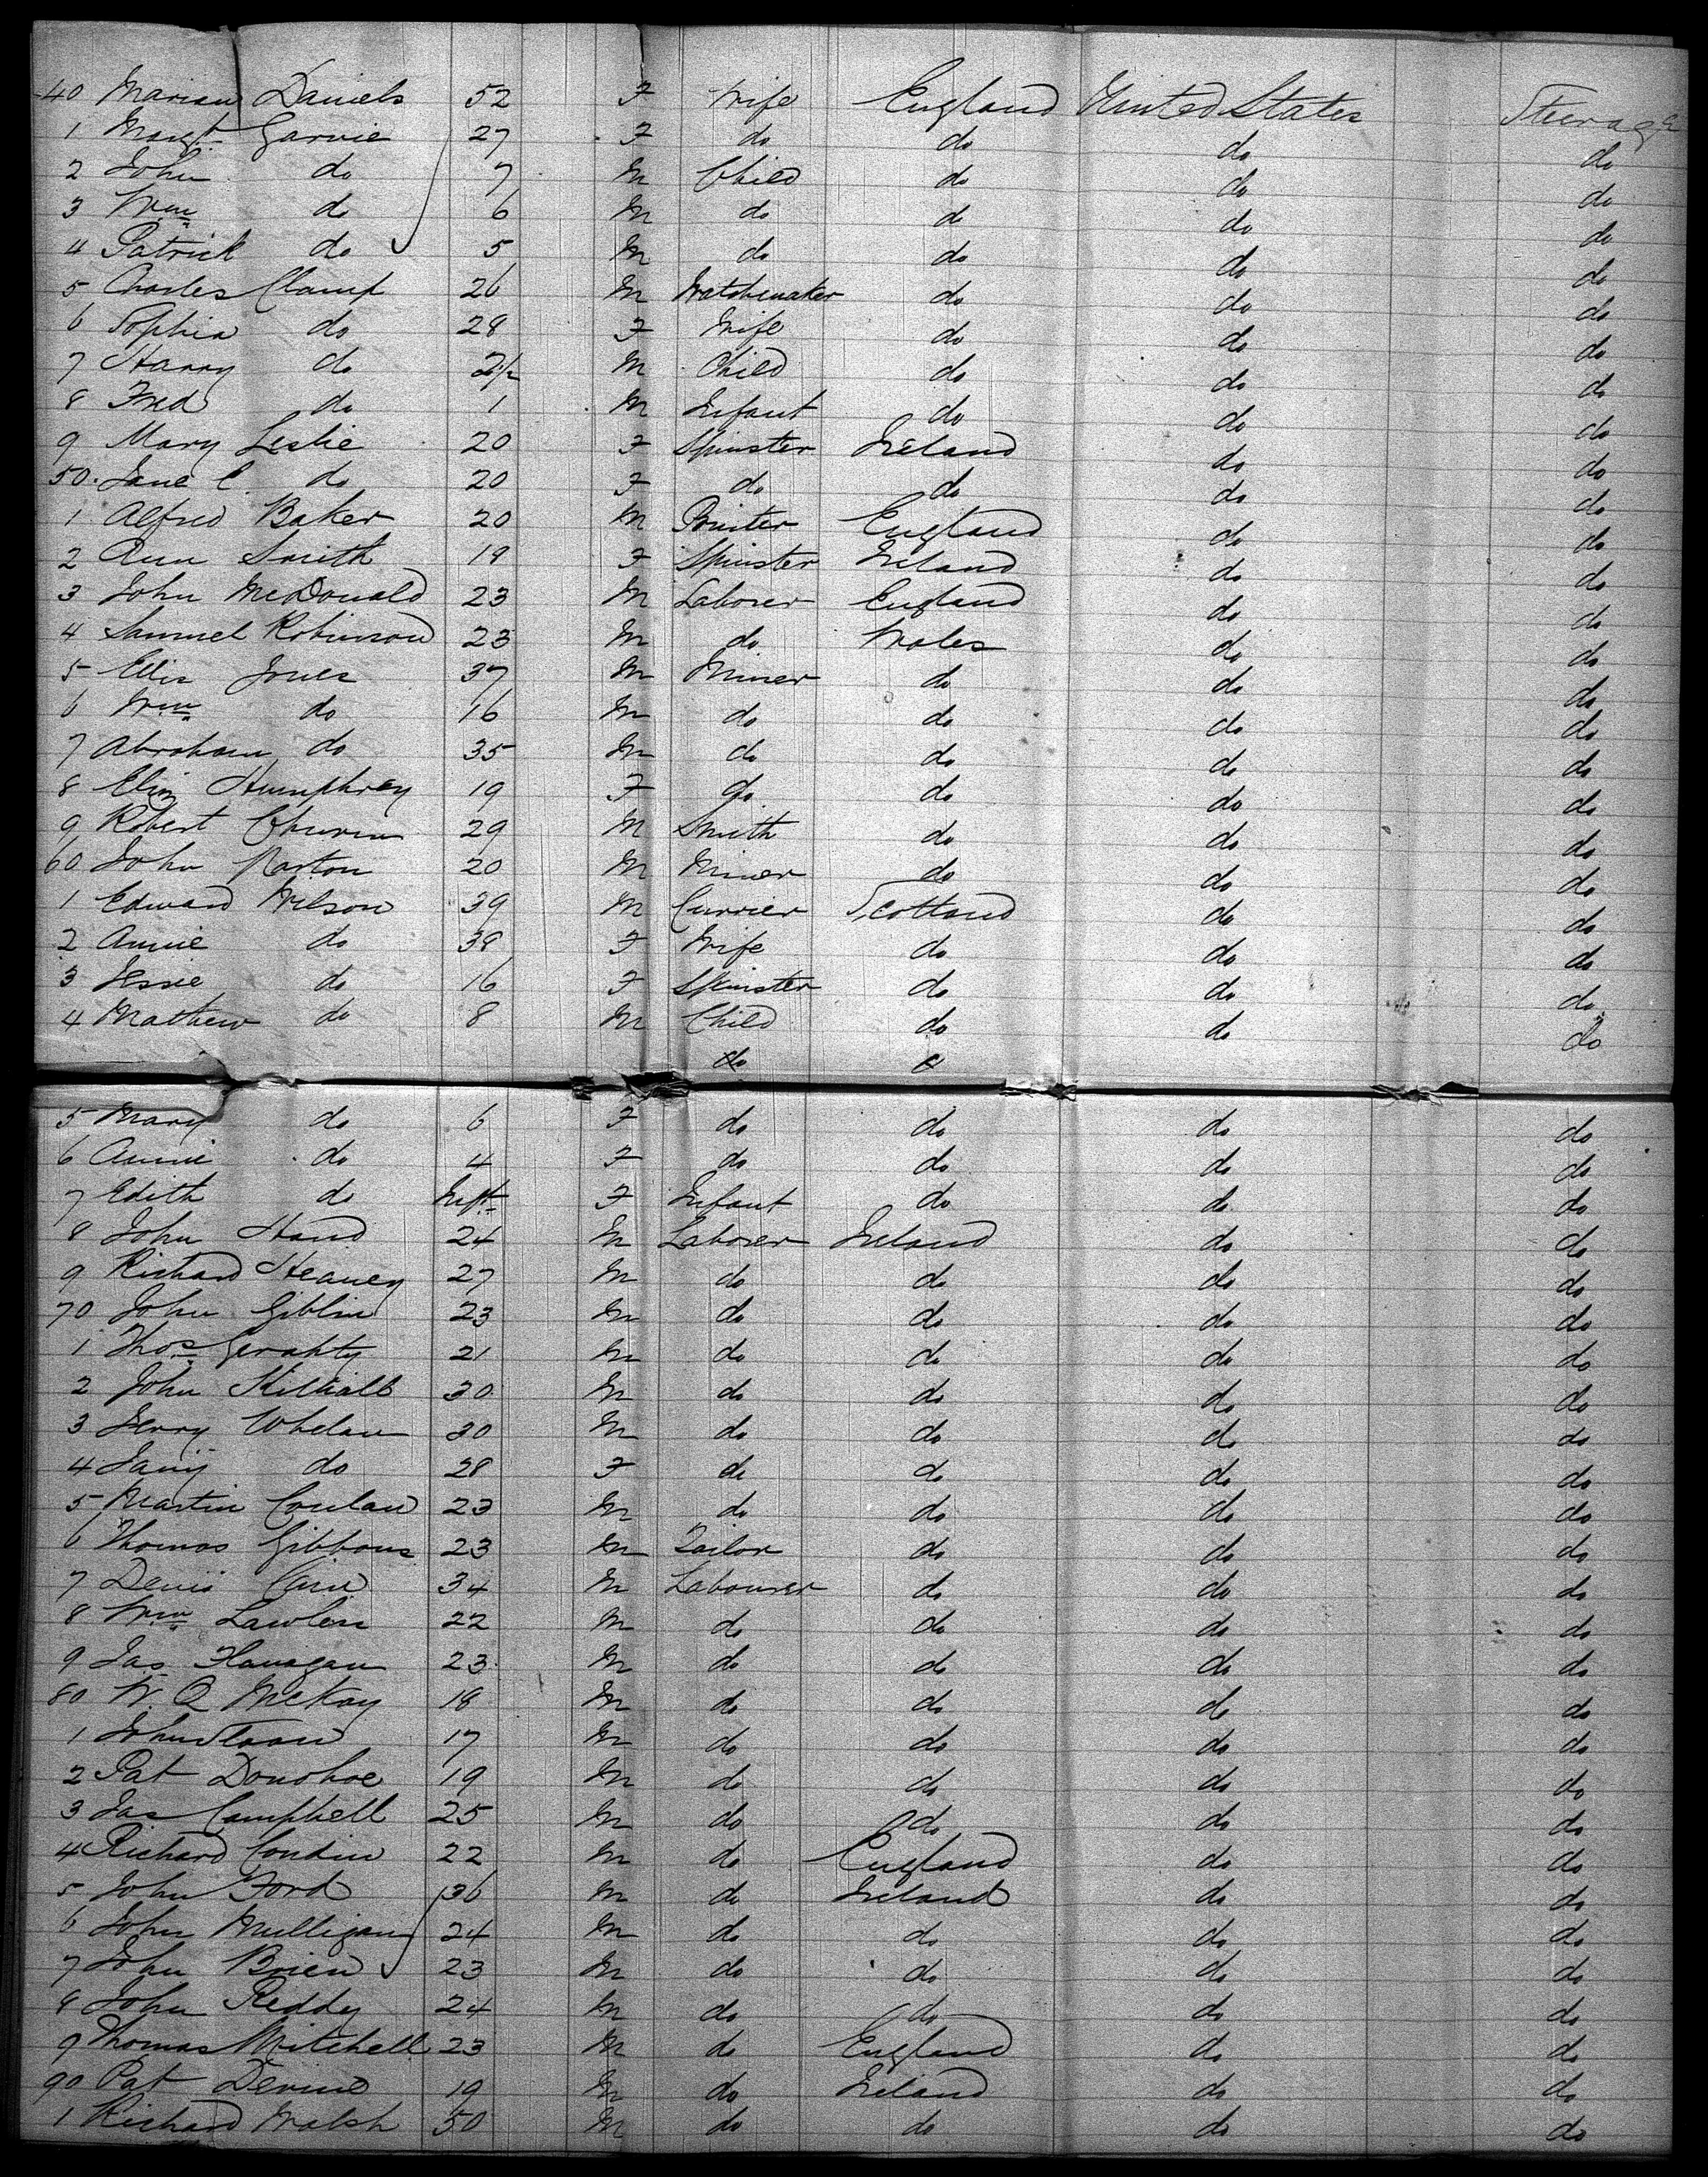 40 Marian Daniels 52 F Wife England United States Steerage
1 Margt Garvie 27 F do do do do
2 John do 7 M Child do do do
3 Wm do 6 M do do do do
4 Patrick do 5 M do do do do
5 Charles Clamp 26 M Watchmaker do do do
6 Sophia do 28 F Wife do do do
7 Harry do 2½ M Child do do do
8 Fred do 1 M Infant do do do
9 Mary Leslie 20 F Spinster Ireland do do
50. Jane C. do 20 F do do do do
1 Alfred Baker 20 M Printer England do do
2 Ann Smith 19 F Spinster Ireland do do
3 John McDonald 23 M Laborer England do do
4 Samuel Robinson 23 M do Wales do do
5 Ellis Jones 37 M Miner do do do
6 Wm do 16 M do do do do
7 Abraham do 35 M do do do do
8 Eliz Humphrey 19 F do do do do
9 Robert 29 M Smith do do do
60 John 20 M Miner do do do
1 Edward Wilson 39 M Currier Scotland do do
2 Annie do 38 F Wife do do do
3 Jessie do 16 F Spinster do do do
4 Mathew do 8 M Child do do do
do
5 Mary do 6 F do do do do
6 Annie do 4 F do do do do
7 Edith do Inft F Infant do do do
8 John Hand 24 M Laborer Ireland do do
9 Richard Heaney 27 M do do do do
70 John Giblin 23 M do do do do
1 Thos Gerahty 21 M do do do do
2 John 30 M do do do do
3 Jerry Whelan 30 M do do do do
4 do 28 F do do do do
5 Martin Conlan 23 M do do do do
6 Thomas Gibbons 23 M Tailor do do do
7 Denis 34 M Labourer do do do
8 Wm Lawler 22 M do do do do
9 Jas Flanagan 23 M do do do do
80 W. Q McKay 18 M do do do do
1 John Sloan 17 M do do do do
2 Pat Donohoe 19 M do do do do
3 Jas Campbell 25 M do do do do
4 Richard 22 M do England do do
5 John Ford 36 M do Ireland do do
6 John Mulligan 24 M do do do do
7 John Brien 23 M do do do do
8 John Reddy 24 M do do do do
9 Thomas Mitchell 23 M do England do do
90 Pat Devine 19 M do Ireland do do
1 Richard Walsh 50 M do do do do